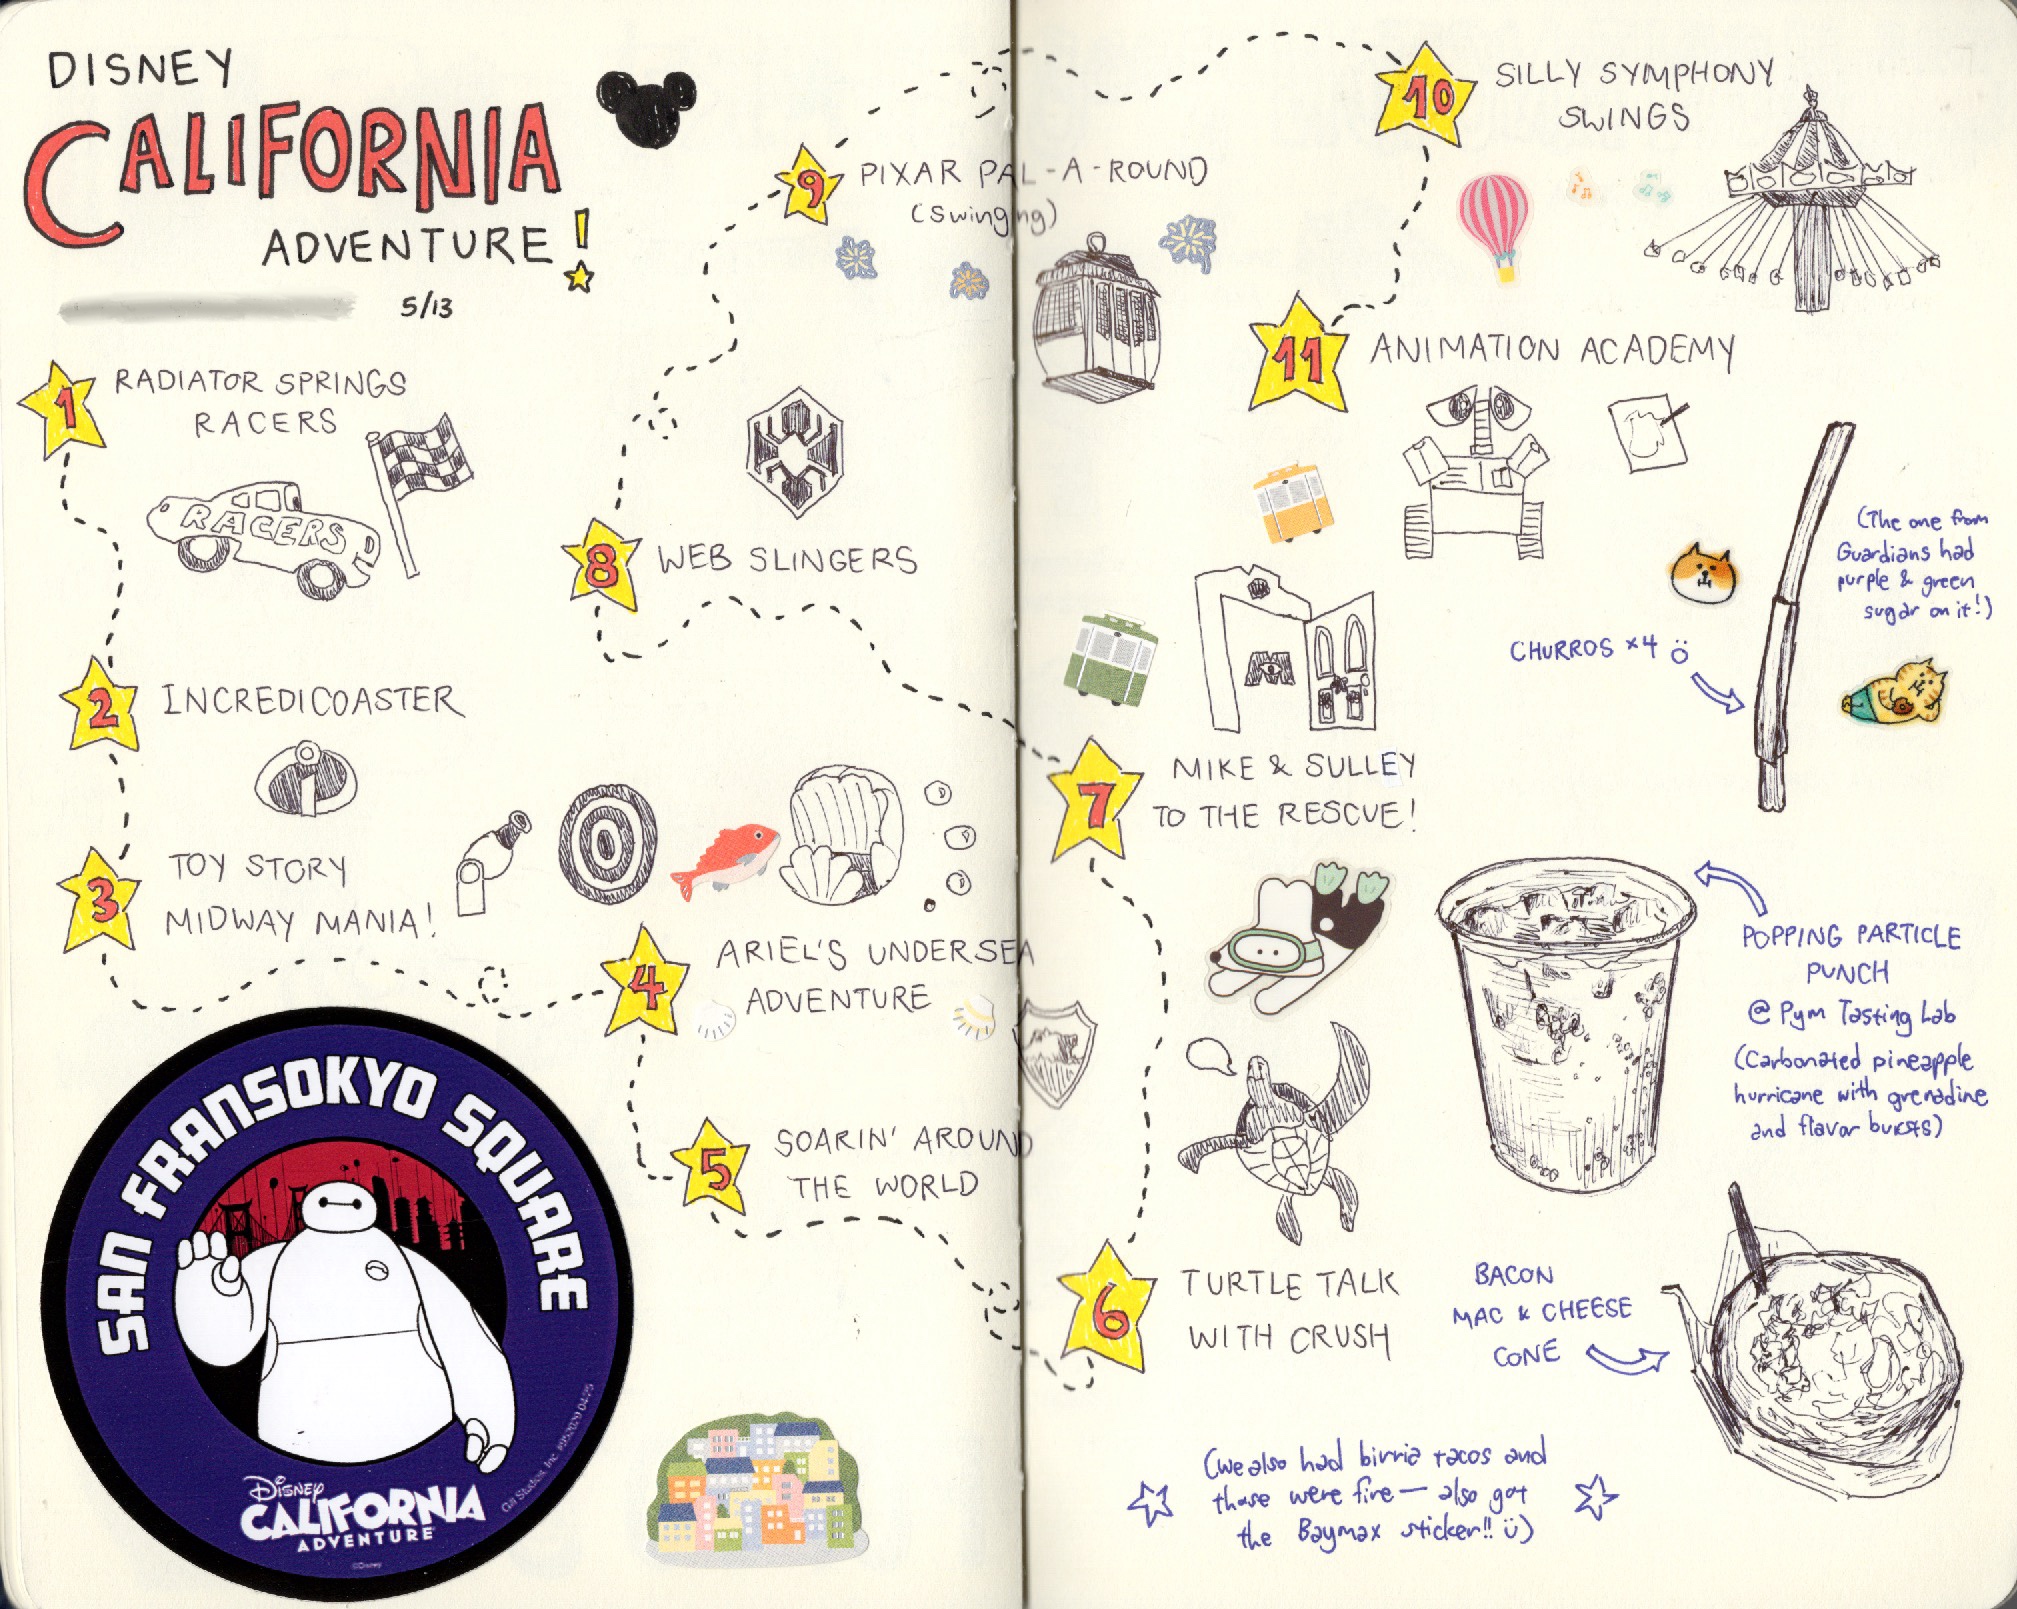 DISNEY
CALIFORNIA
ADVENTURE!
5/13
1
RADIATOR SPRINGS
RACERS
RACERS
2
INCREDICOASTER
3
TOY STORY
MIDWAY MANIA!
4
ARIEL'S UNDERSEA
ADVENTURE
5
SOARIN' AROUND
THE WORLD
6
TURTLE TALK
WITH CRUSH
7
MIKE & SULLEY
TO THE RESCUE!
8
WEB SLINGERS
9
PIXAR PAL-A-ROUND
(swinging)
10
SILLY SYMPHONY
SWINGS
11
ANIMATION ACADEMY
(The one from
Guardians had
purple & green
sugar on it!)
CHURROS x4
POPPING PARTICLE
PUNCH
@ Pym Tasting Lab
(Carbonated pineapple
hurricane with grenadine
and flavor bursts)
BACON
MAC & CHEESE
CONE
(we also had birria tacos and
those were fire — also got
the Baymax sticker!! ü)
SAN FRANSOKYO SQUARE
Disney
CALIFORNIA
ADVENTURE
©Disney